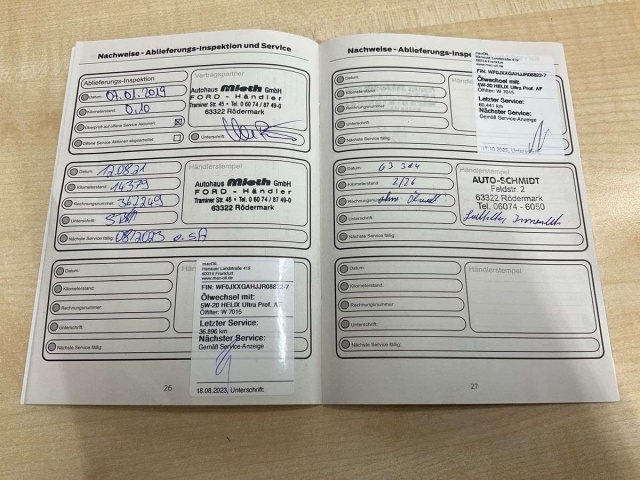 Nachweise - Ablieferungs-Inspektion und Service
Ablieferungs-Inspektion
Datum: 07.01.2019
Kilometerstand: 0,10
Überprüft auf offene Service Aktionen
Offene Service Aktionen abgeschlossen
Vertragspartner
Autohaus Mieth GmbH
FORD - Händler
Traminer Str. 45 • Tel. 0 60 74 / 87 49-0
63322 Rödermark
Unterschrift:
Datum:
Kilometerstand: 14379
Rechnungsnummer: 367249
Unterschrift:
Nächste Service fällig: 08/2023 o.SA
Händlerstempel
Autohaus Mieth GmbH
FORD - Händler
Traminer Str. 45 • Tel. 0 60 74 / 87 49-0
63322 Rödermark
Datum:
Kilometerstand:
Rechnungsnummer:
Unterschrift:
Nächste Service fällig:
macOIL
Hanauer Landstraße 419
60314 Frankfurt
www.mac-oil.de
FIN: WF0JXXGAHJJR08822-7
Ölwechsel mit:
5W-20 HELIX Ultra Prof. AF
Ölfilter: W 7015
Letzter Service:
36.896 km
Nächster Service:
Gemäß Service-Anzeige
18.08.2023, Unterschrift:
26
Nachweise - Ablieferungs-Inspe
Datum:
Kilometerstand:
Rechnungsnummer:
Unterschrift:
Nächste Service fällig:
macOIL
Hanauer Landstraße 419
60314 Frankfurt
www.mac-oil.de
FIN: WF0JXXGAHJJR08822-7
Ölwechsel mit:
5W-20 HELIX Ultra Prof. AF
Ölfilter: W 7015
Letzter Service:
60.441 km
Nächster Service:
Gemäß Service-Anzeige
Datum: 63 304
Kilometerstand: 2/26
Rechnungsnummer:
Unterschrift:
Nächste Service fällig:
Händlerstempel
AUTO-SCHMIDT
Feldstr. 2
63322 Rödermark
Tel. 06074 - 6050
Datum:
Kilometerstand:
Rechnungsnummer:
Unterschrift:
Nächste Service fällig:
Händlerstempel
27